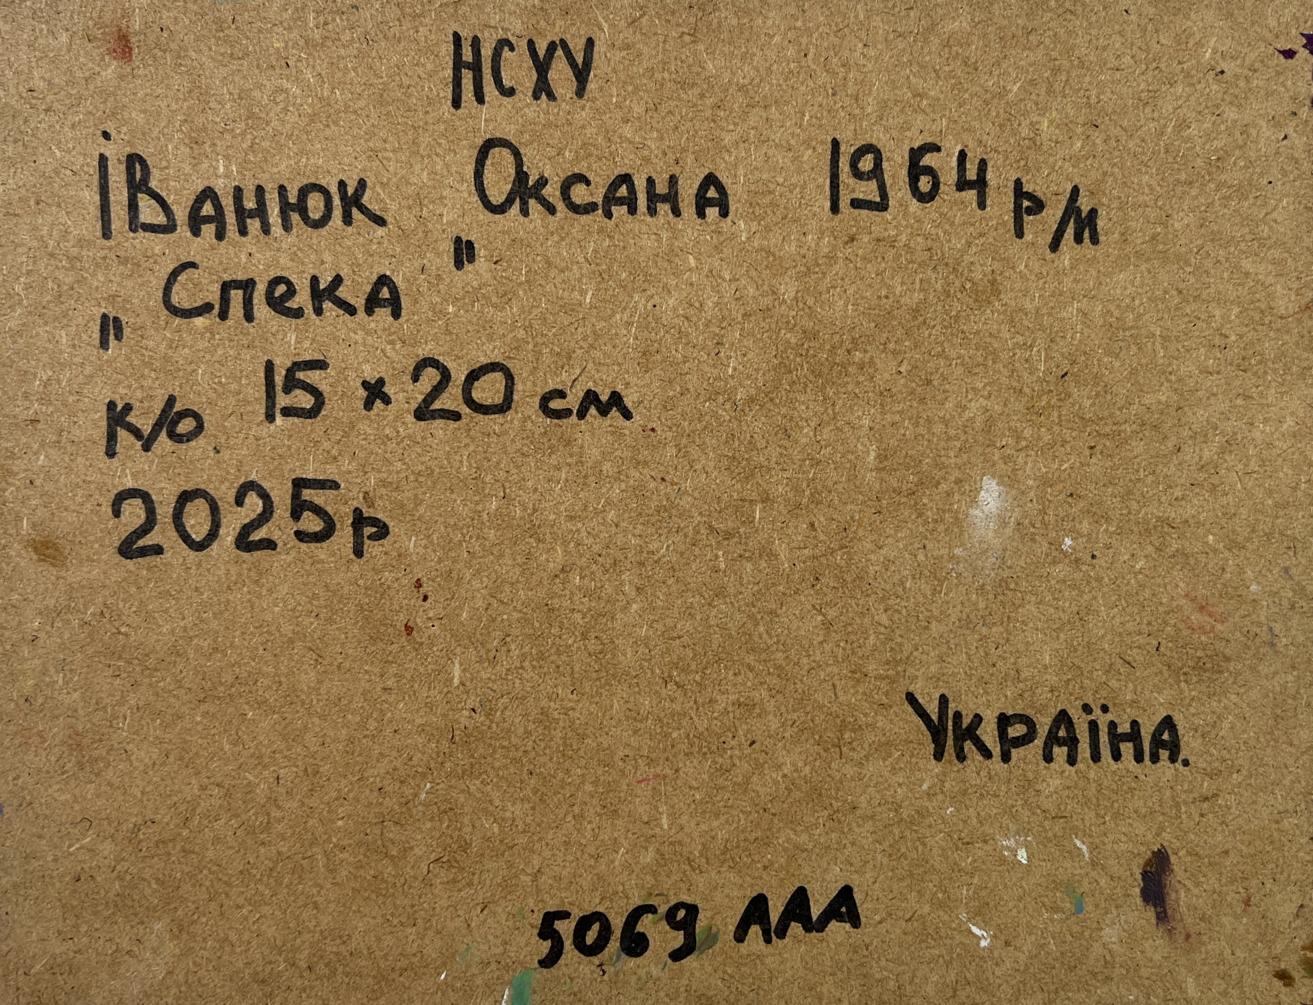 НСХУ
Іванюк Оксана 1964 р/н
„Спека"
к/о 15 × 20 см
2025р
Україна.
5069 ААА